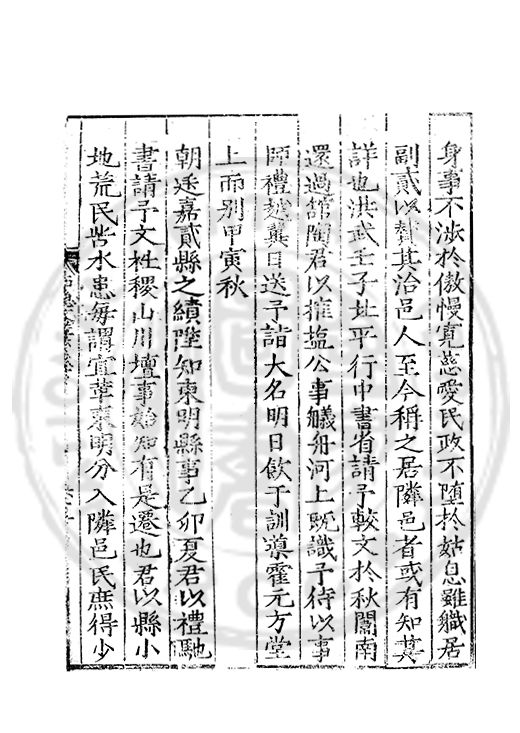 身事不涉於傲慢寬慈愛民政不墮於姑息雖軄居
副貳以賛其治邑人至今稱之居隣邑者或有知其
詳也洪武壬子北平行中書省請予較文於秋闈南
還過舘陶君以摧塩公事艤舟河上旣識予待以事
師禮越龔日送予詣大名明日飲于訓導霍元方堂
上而别甲寅秋
朝廷嘉貳縣之績陞知東明縣事乙卯夏君以禮馳
書請予文社稷山川壇事始知有是遷也君以縣小
地荒民苦水患每謂宜革東明分入隣邑民庶得少